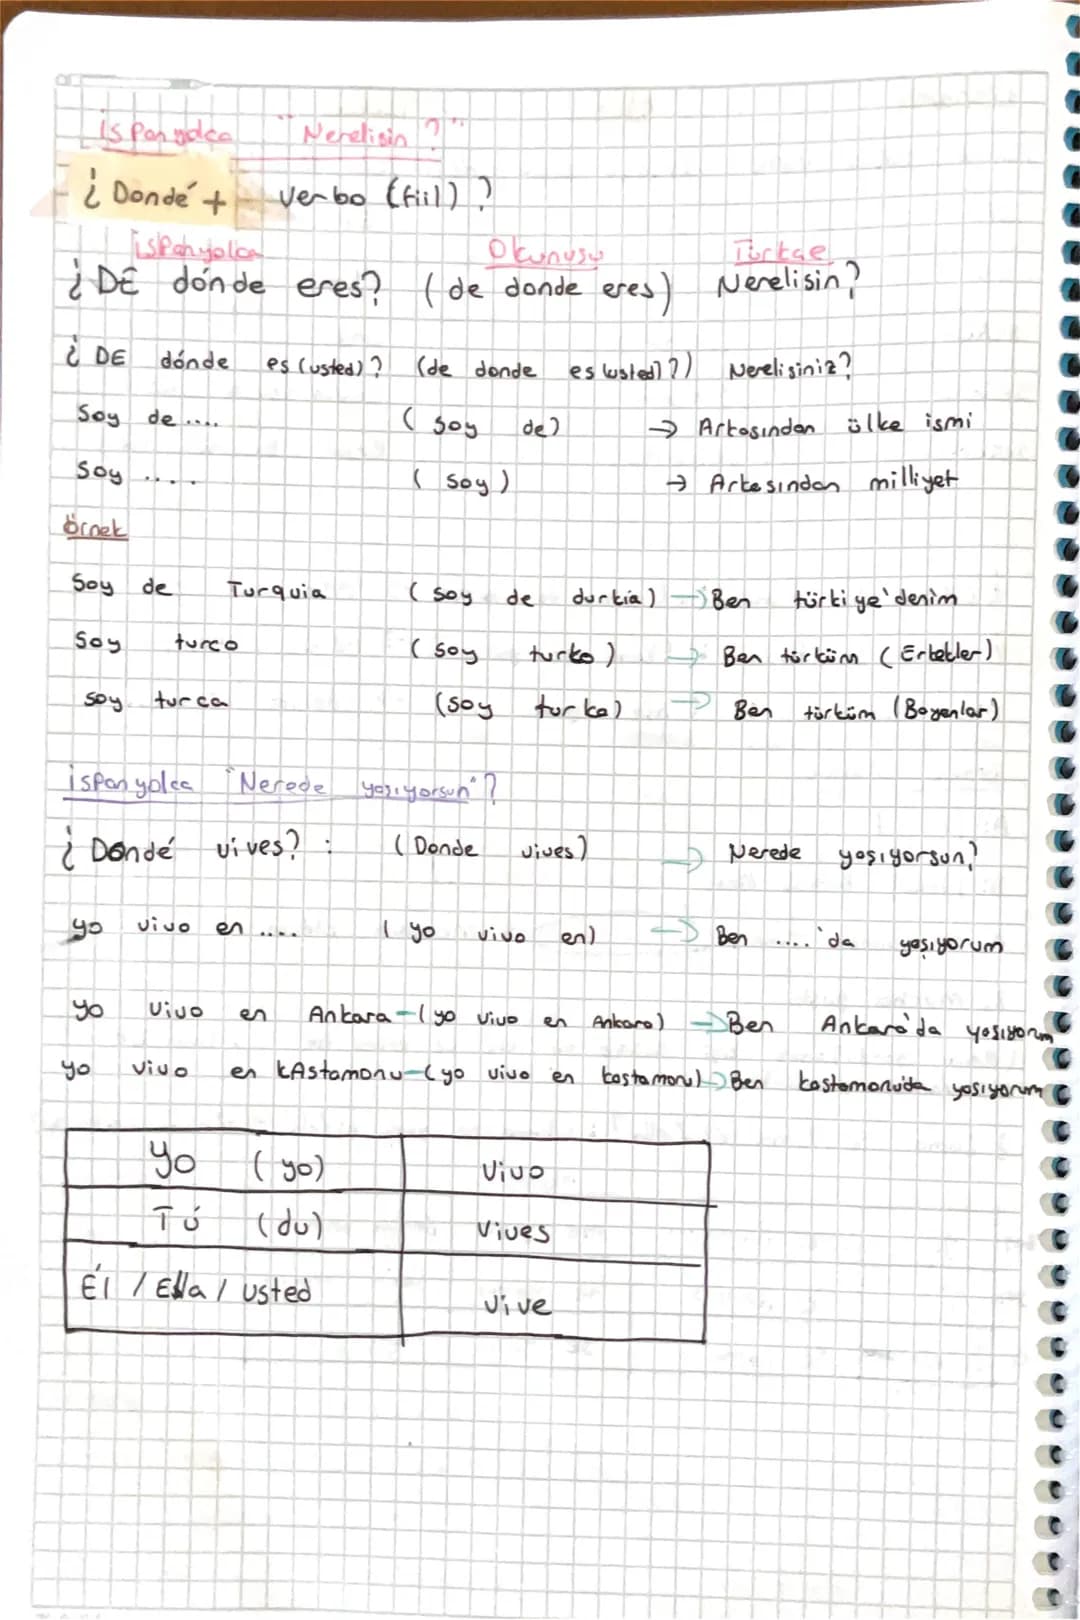 ispanyolca "Nerelisin?"
¿ Dondé + verbo (fiil) ?
ispanyolca Okunusu Türkçe
¿ DE dónde eres? (de donde eres) Nerelisin?
¿ DE dónde es (usted)? (de donde es (usted)?) Nerelisiniz?
Soy de .... (soy de) → Arkasından ülke ismi
Soy .... (soy) → Arkasından milliyet
örnek
Soy de Turquia (soy de durkia) → Ben türkiye'denim
Soy turco (soy turko) → Ben türküm (Erkekler)
soy turca (soy turka) → Ben türküm (Bayanlar)
ispanyolca "Nerede yaşıyorsun"?
¿ Dondé vives? : (Donde vives) → Nerede yaşıyorsun?
yo vivo en .... (yo vivo en) → Ben ....'da yaşıyorum
yo vivo en Ankara - (yo vivo en Ankara) → Ben Ankara'da yaşıyorum
yo vivo en kAstamonu - (yo vivo en kastamonu) → Ben kastamonu'da yaşıyorum
yo (yo) vivo
Tú (du) vives
Él / Ella / usted vive